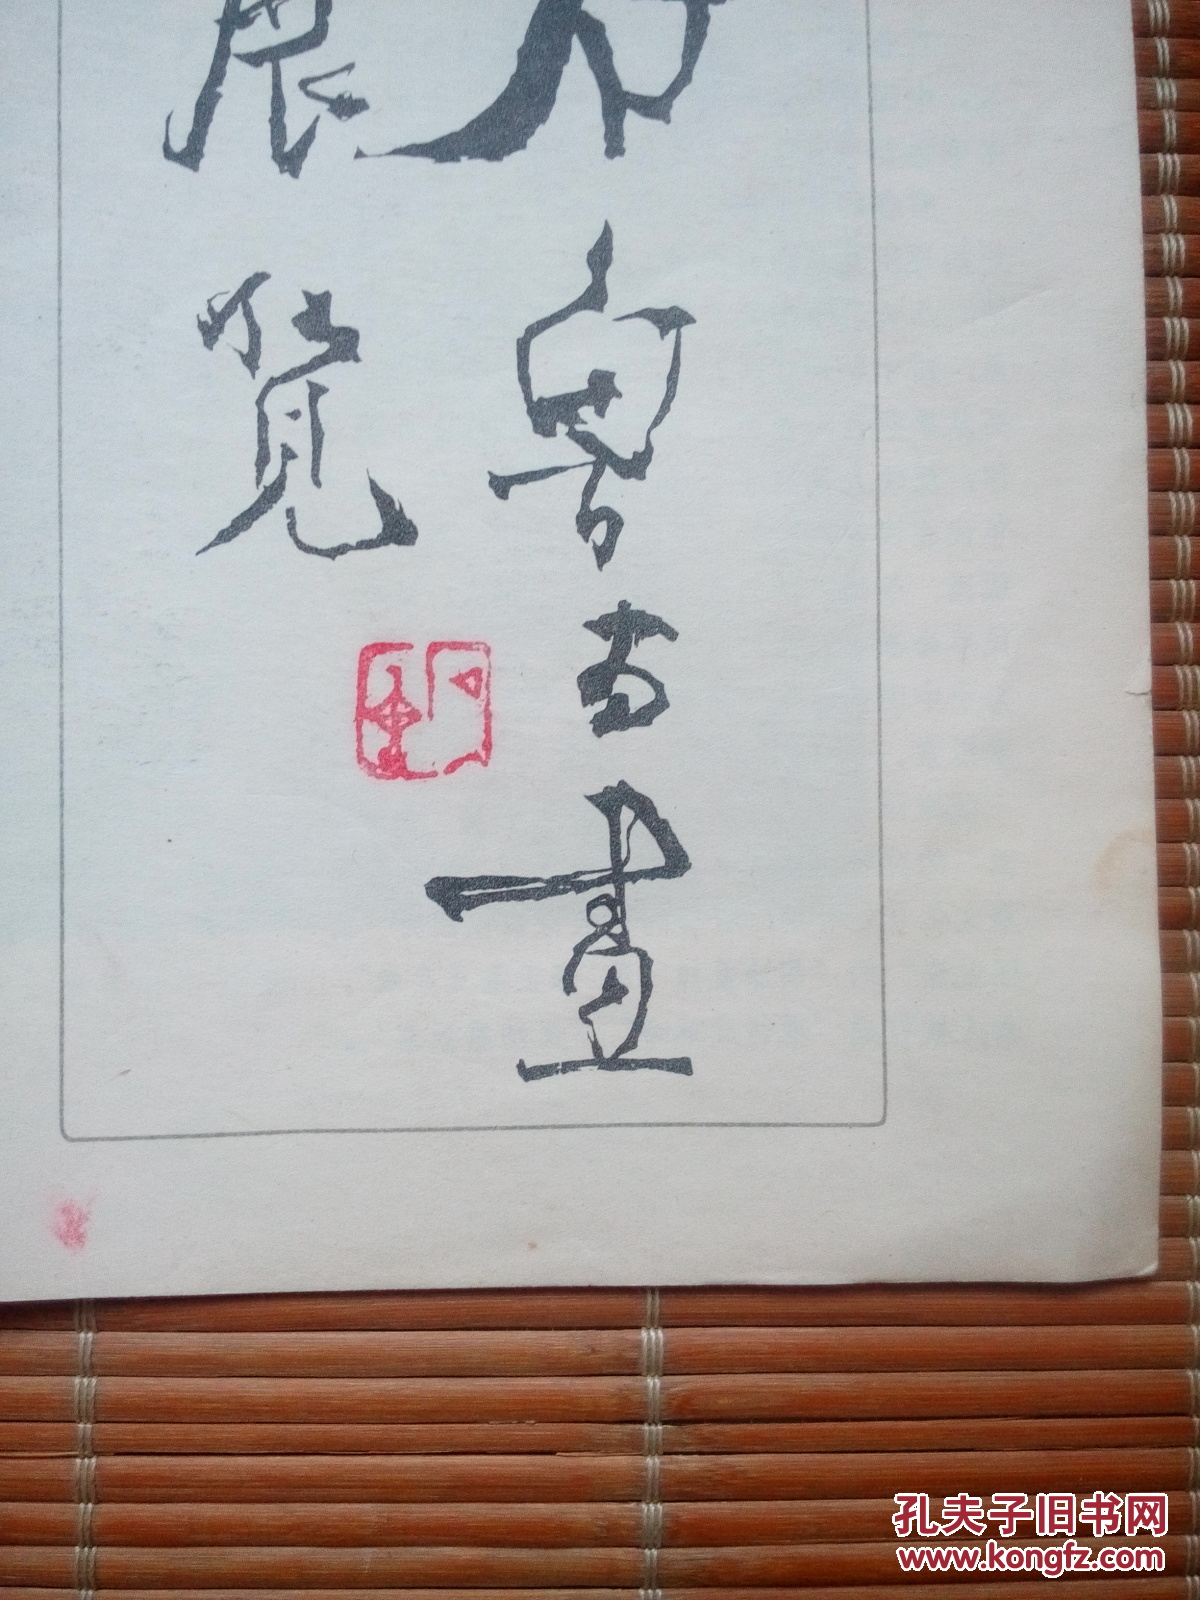 石鲁书畫
展览
孔夫子旧书网
www.kongfz.com